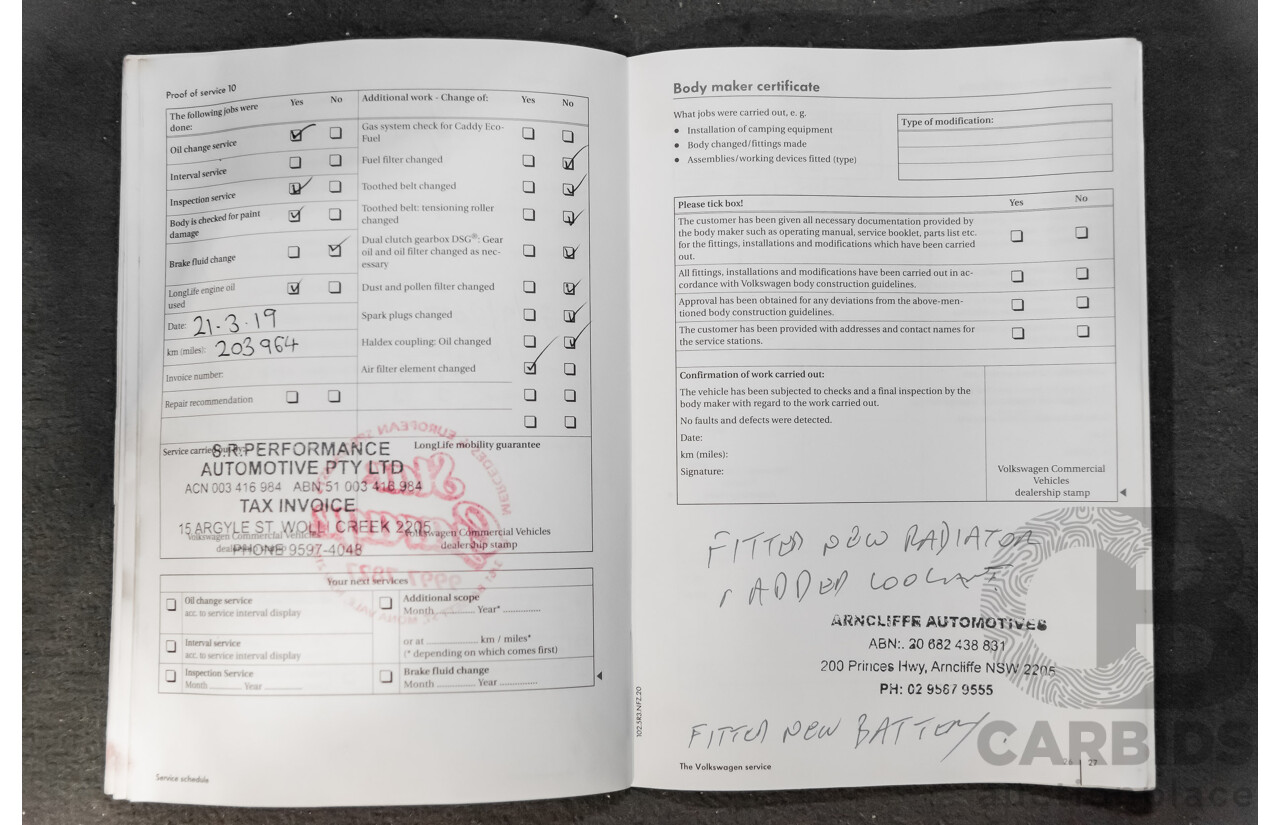 Proof of service 10
The following jobs were done:
Yes
No
Oil change service
Interval service
Inspection service
Body is checked for paint damage
Brake fluid change
LongLife engine oil used
Date: 21-3-19
km (miles): 203964
Invoice number:
Repair recommendation
Additional work - Change of:
Yes
No
Gas system check for Caddy Eco-
Fuel
Fuel filter changed
Toothed belt changed
Toothed belt: tensioning roller
changed
Dual clutch gearbox DSG®: Gear
oil and oil filter changed as nec-
essary
Dust and pollen filter changed
Spark plugs changed
Haldex coupling: Oil changed
Air filter element changed
LongLife mobility guarantee
S.R.PERFORMANCE
AUTOMOTIVE PTY LTD
ACN 003 416 984 ABN 51 003 416 984
TAX INVOICE
15 ARGYLE ST, WOLLI CREEK 2205
PHONE 9597-4048
Volkswagen Commercial Vehicles
dealership stamp
Your next services
Oil change service
acc. to service interval display
Interval service
acc. to service interval display
Inspection Service
Month Year
Additional scope
Month Year*
or at km / miles*
(* depending on which comes first)
Brake fluid change
Month Year
Service schedule
Body maker certificate
What jobs were carried out, e. g.
● Installation of camping equipment
● Body changed/fittings made
● Assemblies/working devices fitted (type)
Type of modification:
Please tick box!
Yes
No
The customer has been given all necessary documentation provided by
the body maker such as operating manual, service booklet, parts list etc.
for the fittings, installations and modifications which have been carried
out.
All fittings, installations and modifications have been carried out in ac-
cordance with Volkswagen body construction guidelines.
Approval has been obtained for any deviations from the above-men-
tioned body construction guidelines.
The customer has been provided with addresses and contact names for
the service stations.
Confirmation of work carried out:
The vehicle has been subjected to checks and a final inspection by the
body maker with regard to the work carried out.
No faults and defects were detected.
Date:
km (miles):
Signature:
Volkswagen Commercial
Vehicles
dealership stamp
FITTED NEW RADIATOR
ADDED COOLANT
ARNCLIFFE AUTOMOTIVES
ABN:. 20 682 438 831
200 Princes Hwy, Arncliffe NSW 2205
PH: 02 9567 9555
FITTED NEW BATTERY
102.5R3.NFZ.20
The Volkswagen service
27
CARBIDS